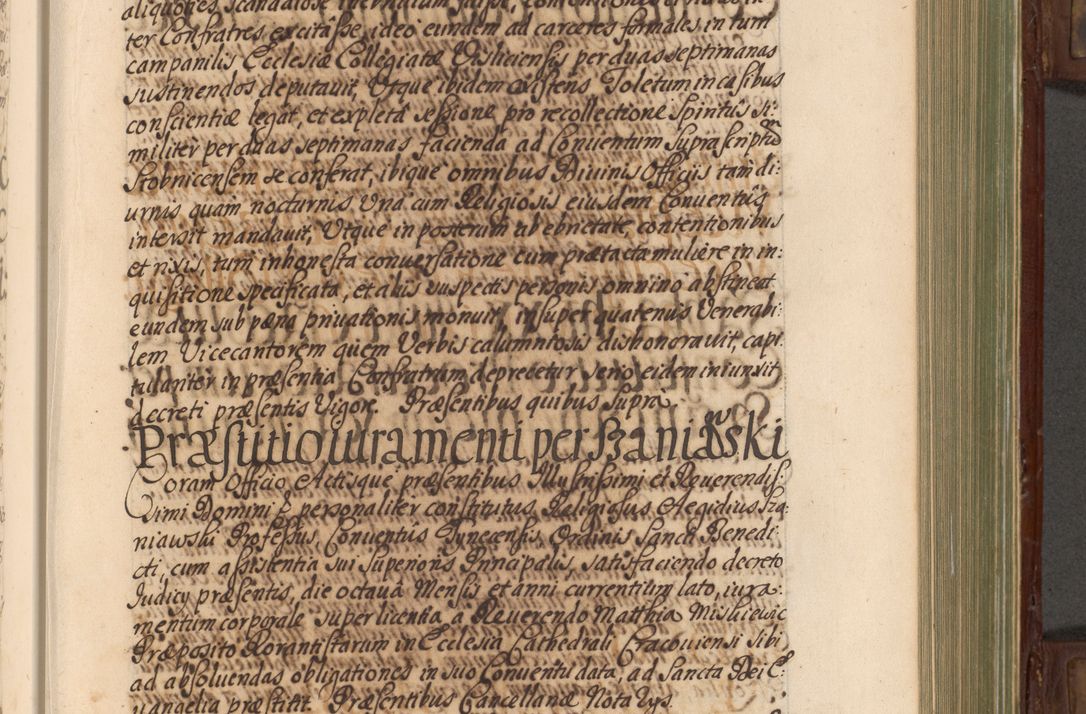 aliquoties scandalose
ter Confratres excitâsse, ideo eundem ad carceres formales in turri
campanilis Ecclesiæ Collegiatæ Visliciensis per duas septimanas
sustinendos deputavit, Utque ibidem existens Toletum in casibus
conscientiæ legat, et expletâ sessione, pro recollectione Spiritûs si:
militer per duas septimanas facienda ad Conventum Suprascriptũ
Stobnicensem se conferat, ibique omnibus Divinis Officijs tam di:
urnis quam nocturnis Una cum Religiosis eiusdem Conventûs
intersit mandavit, Utque in posterum ab ebrietate, contentionibus
et rixis, tum inhonesta conversatione cum prætacta muliere in in:
quisitione specificata, et alijs suspectis personis omnino abstineat
eundem sub pæna privationis monuit, insuper quatenus Venerabi:
lem Vicecantorem quem Verbis calumniosis dishonoravit, capi
tulariter in præsentia Confratrum deprecetur serio eidem iniunxit
decreti præsentis Vigore. Præsentibus quibus supra.
Præstitio iuramenti per Szaniawski
Coram Officio, Actisque præsentibus Illustrissimi et Reverendis:
simi Domini personaliter constitutus Religiosus Aegidius Sza:
niawski Professus, Conventûs Tynecensis, Ordinis Sancti Benedi:
cti, cum assistentia sui Superioris Principalis, satisfaciendo decreto
Judicij præsentis, die octava Mensis et anni currentium lato, iura:
mentum corporale super licentia, a Reverendo Matthia Miskiewic
Præposito Rorantistarum in Ecclesia Cathedrali Cracoviensi sibi
ad absolvendas obligationes in suo Conventu data, ad Sancta Dei E:
vangelia præstitit Præsentibus Cancellariæ Notarijs.